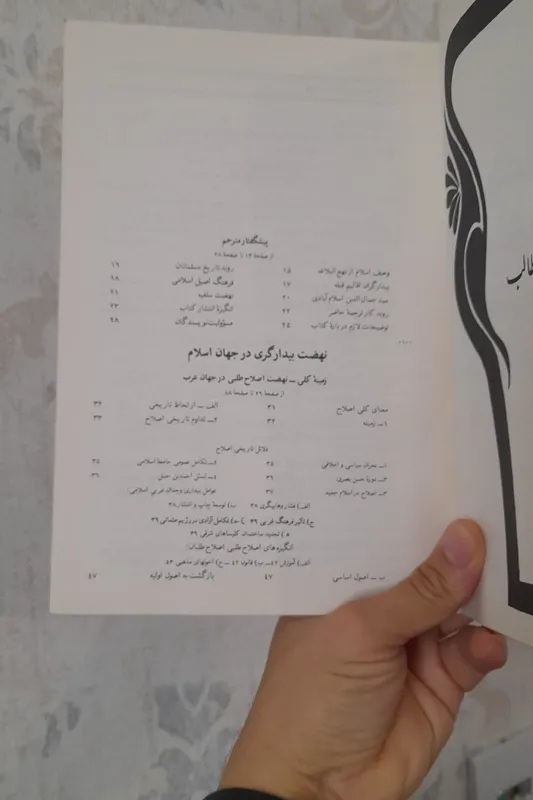 پیشگفتار مترجم
از صفحهٔ ۱۴ تا صفحهٔ ۲۸
وصف اسلام از نهج البلاغه ۱۵ روند تاریخ مسلمانان ۱۶
بیدارگران اقالیم قبله ۱۷ فرهنگ اصیل اسلامی ۱۸
سید جمال الدین اسلام آبادی ۲۰ نهضت سلفیه ۲۱
روند کار ترجمهٔ حاضر ۲۲ انگیزهٔ انتشار کتاب ۲۳
توضیحات لازم دربارهٔ کتاب ۲۵ مسؤولیت نویسندگان ۲۸
نهضت بیدارگری در جهان اسلام
زمینهٔ کلی ــ نهضت اصلاح طلبی در جهان عرب
از صفحهٔ ۲۹ تا صفحهٔ ۸۸
معنای کلی اصلاح ۳۱ الف ــ از لحاظ تاریخی ۳۲
۱ــ زمینه ۳۲ ۲ــ تداوم تاریخی اصلاح ۳۳
دلائل تاریخی اصلاح
۱ــ بحران سیاسی و اخلاقی ۳۵ ۲ــ تکامل عمومی جامعهٔ اسلامی ۳۵
حسن بصری ۳۶ احمد بن حنبل ۳۶
۳ــ اصلاح در اسلام جدید ۳۷ عوامل بیداری و جهان عربی ـ اسلامی:
الف) فشار وهابیگری ۳۸ ب) توسعهٔ چاپ و انتشار ۳۸
ج) تأثیر فرهنگ غربی ۳۹ د) تکامل آزادی در رژیم عثمانی ۳۹
ه) تجدید ساختمان کلیساهای شرقی ۳۹
انگیزه‌های اصلاح طلبی اصلاح طلبان:
الف) آموزش ۴۲ ــ ب) قانون ۴۲ ــ ج) اصولهای مذهبی ۴۳
ب ــ اصول اساسی ۴۷ بازگشت به اصول اولیه ۴۷